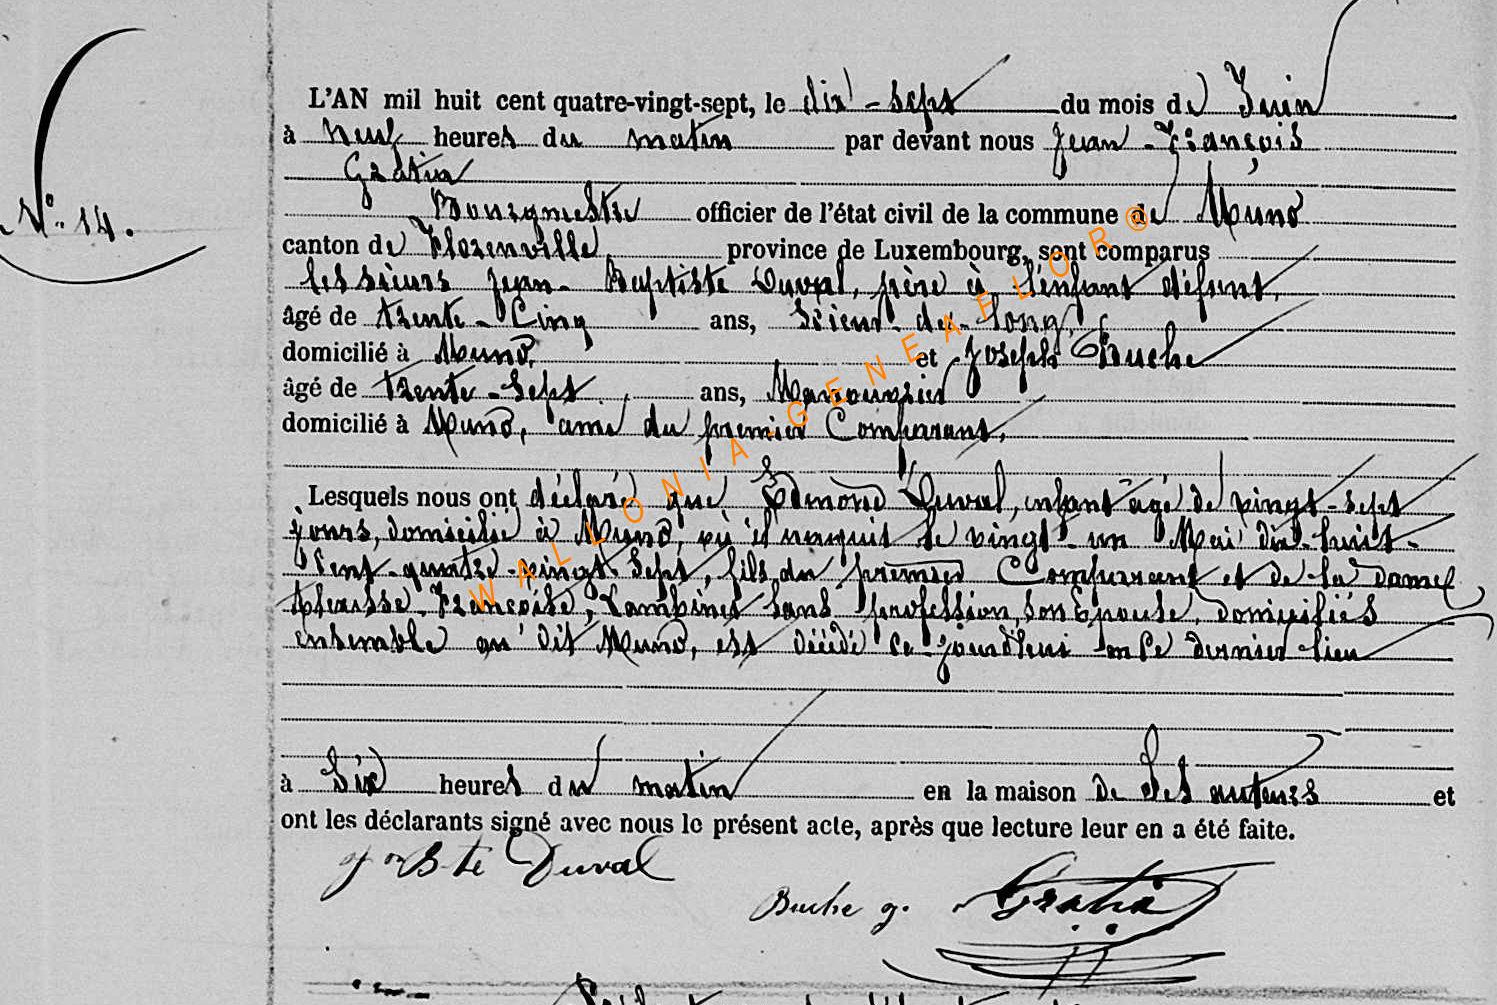 L'AN mil huit cent quatre-vingt-sept, le dix-sept du mois de Juin
à neuf heures du matin par devant nous Jean-François
Gratia
Bourgmestre officier de l'état civil de la commune de Muno
Nº 14.
canton de Florenville province de Luxembourg, sont comparus
les sieurs Jean-Baptiste Duval, père à l'enfant défunt,
âgé de trente-Cinq ans, Scieur-de-long,
domicilié à Muno, et Joseph Buche
âgé de trente-sept ans, Manouvrier
domicilié à Muno, ami du premier Comparant,
Lesquels nous ont déclaré que Edmond Duval, enfant âgé de vingt-sept
jours, domicilié à Muno, où il naquit le vingt-un Mai dix-huit-
Cent-quatre-vingt-Sept, fils du premier Comparant et de la dame
Françoise, Lambinet sans profession, son Epouse, domiciliés
ensemble au dit Muno, est décédé ce-jourd'hui en ce dernier lieu
à Six heures du matin en la maison de Ses auteurs et
ont les déclarants signé avec nous le présent acte, après que lecture leur en a été faite.
Jn Bte Duval
Buche J. Gratia
WALLONIA-GENEAFLOR®